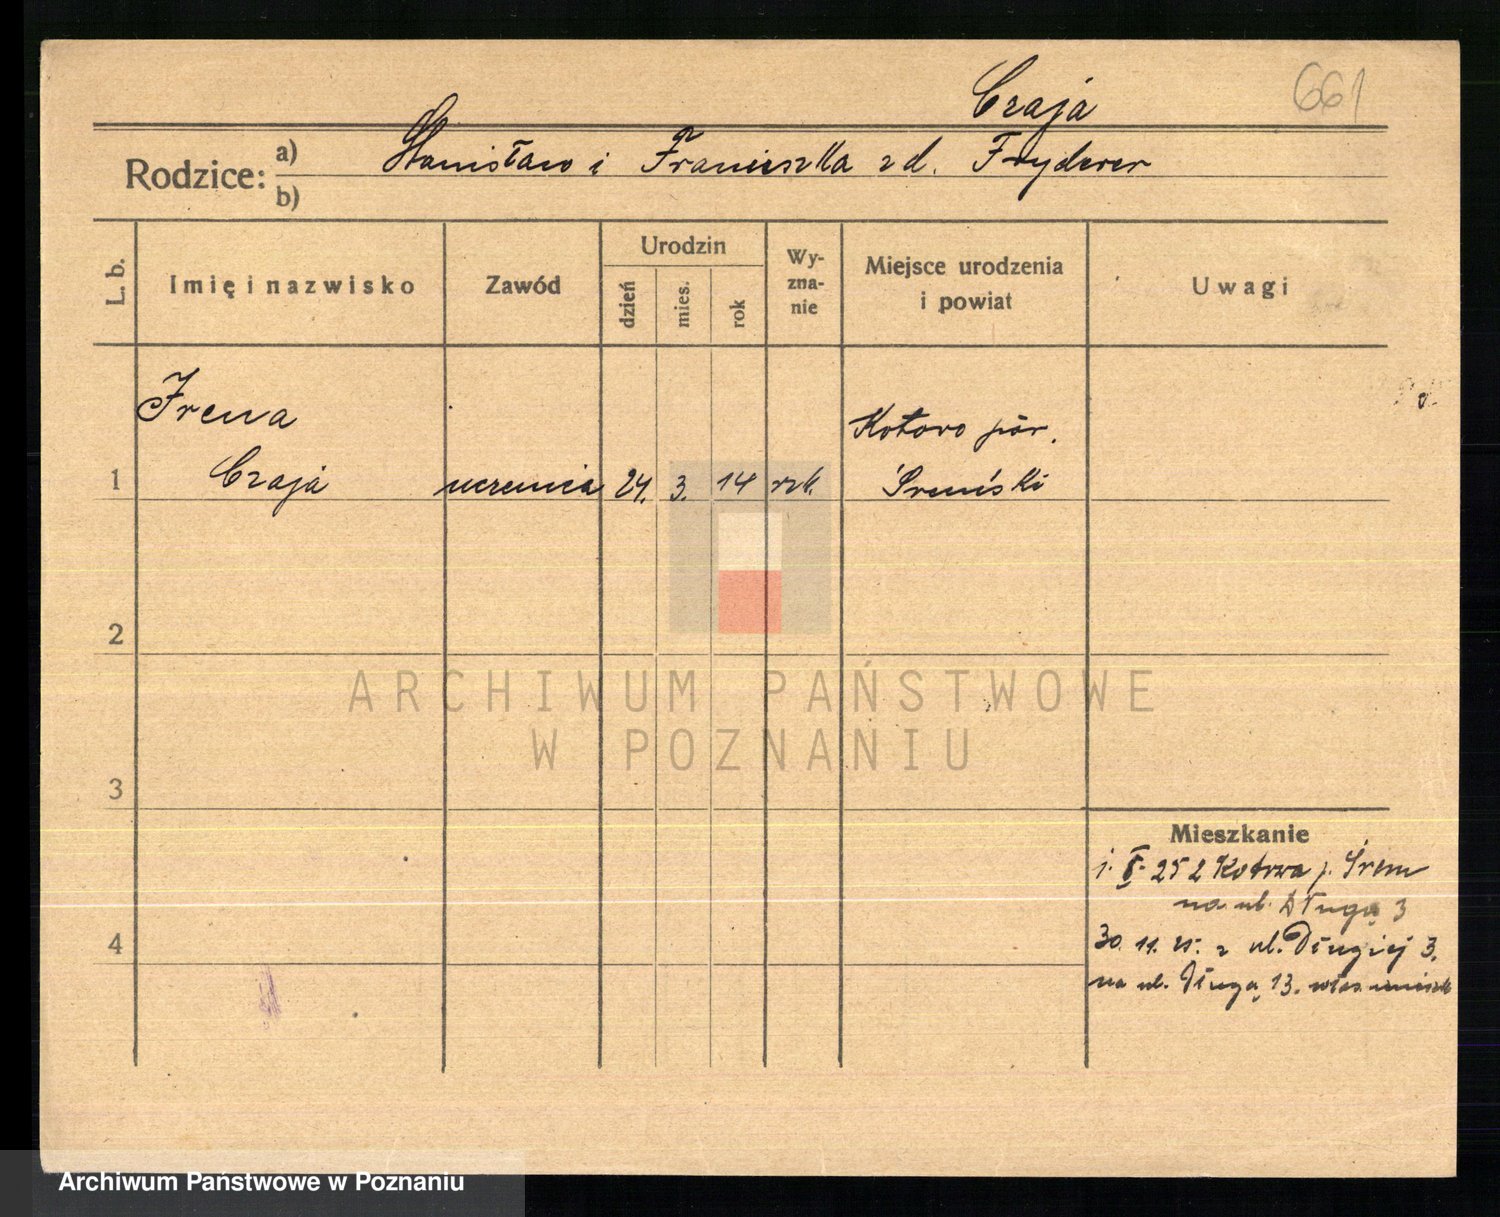 Czaja 661
Rodzice: a) Stanisław i Franciszka z d. Fryderer
b)
L. b. Imię i nazwisko Zawód Urodzin dzień mies. rok Wy-zna-nie Miejsce urodzenia i powiat Uwagi
Irena Kotowo pow.
1 Czaja uczenica 24. 3. 14 rzk. Śremski
2
ARCHIWUM PAŃSTWOWE
W POZNANIU
3
Mieszkanie
25 z Śrem
na ul. Długą 3
4 30. 11. 25. z ul. Długiej 3.
na ul. Długą 13.
Archiwum Państwowe w Poznaniu